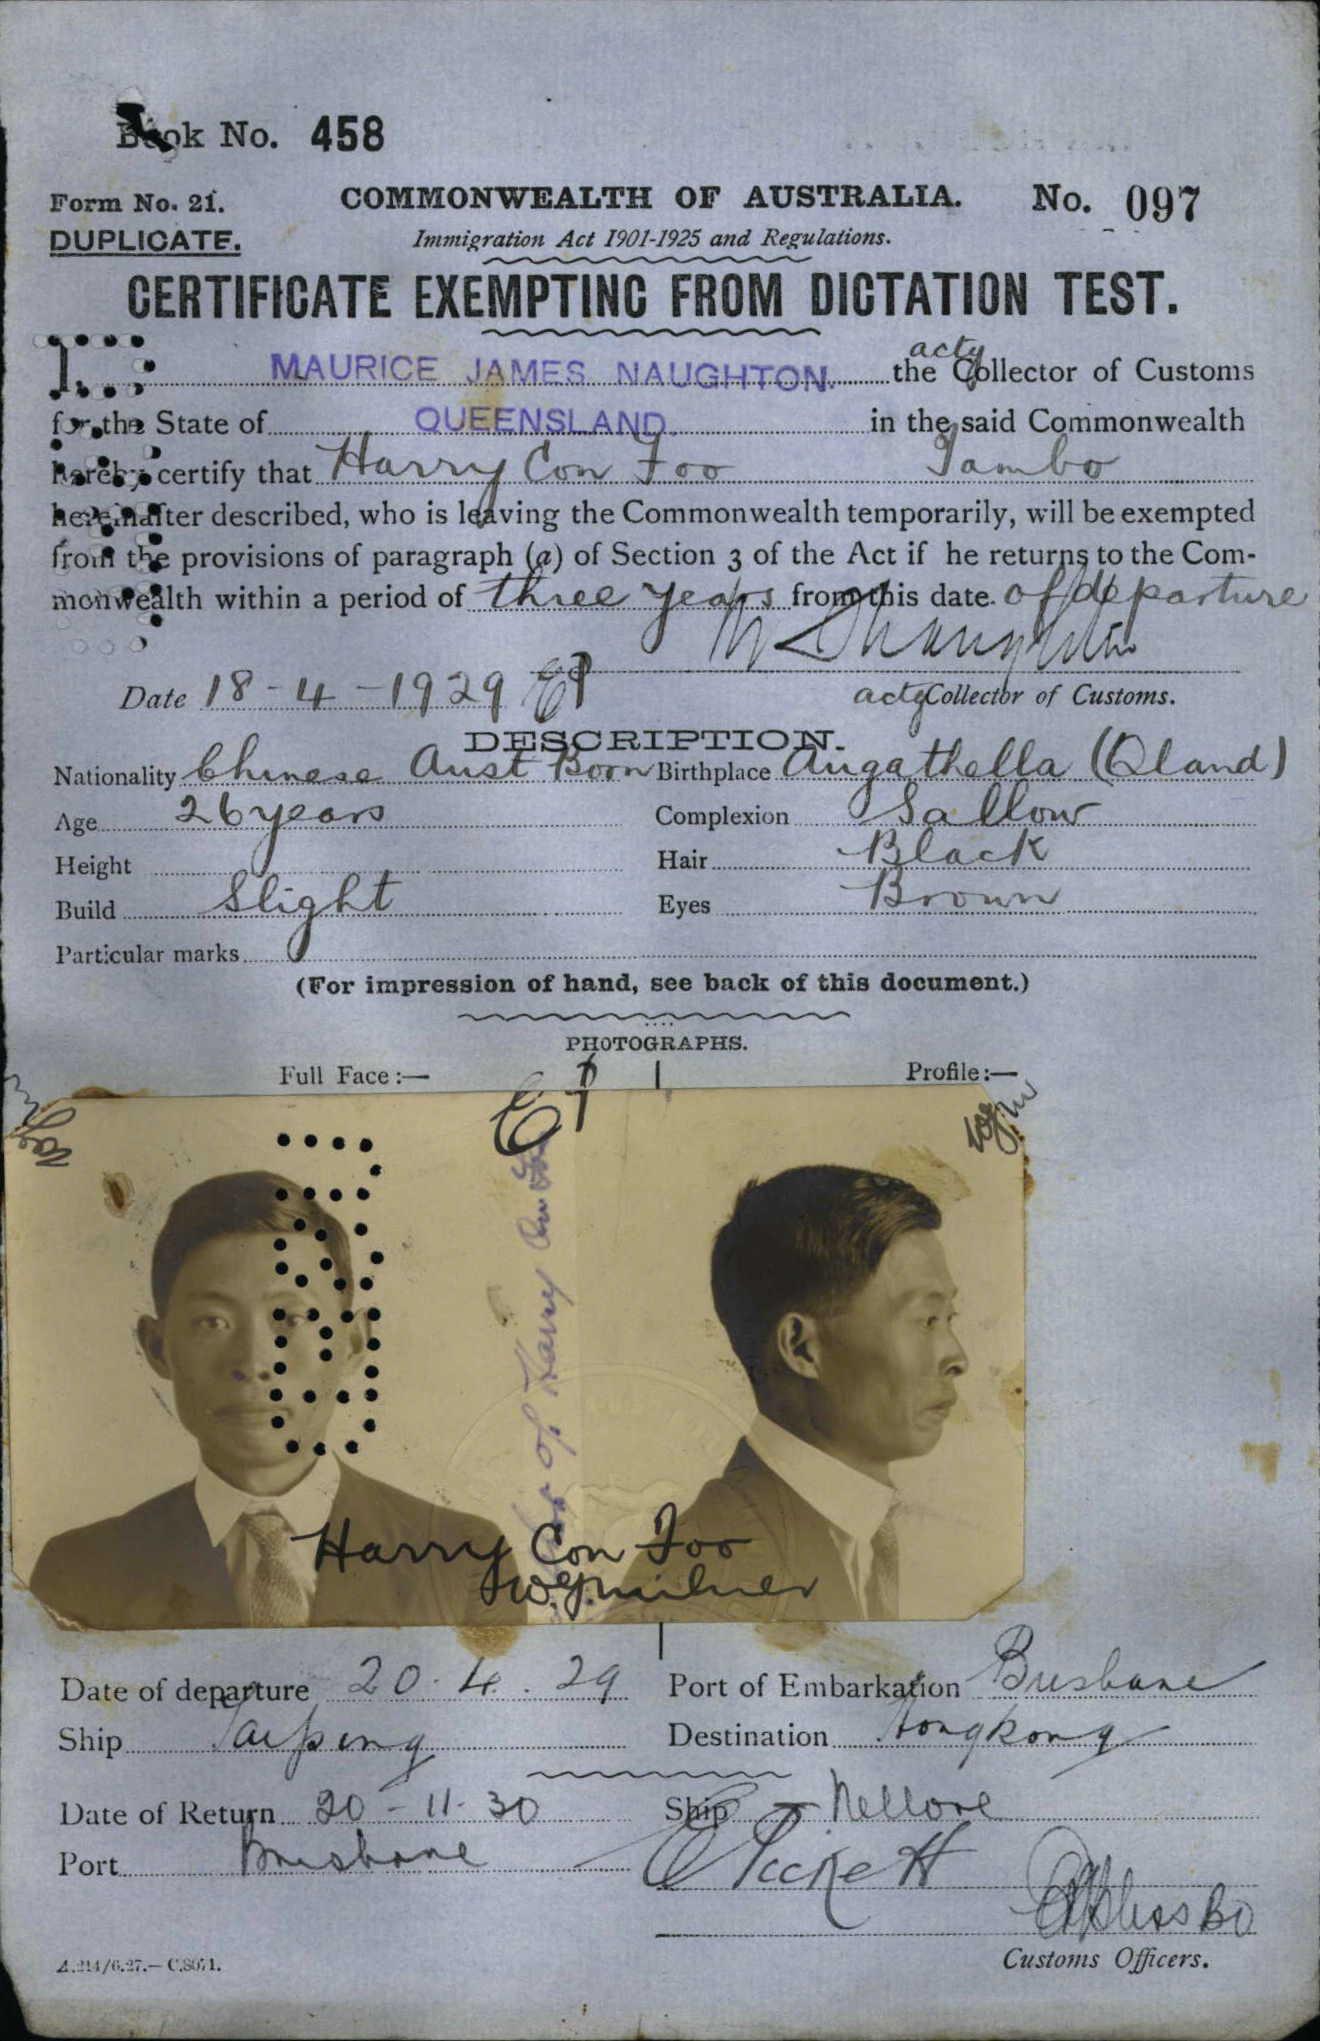 Book No. 458
Form No. 21. COMMONWEALTH OF AUSTRALIA. No. 097
DUPLICATE. Immigration Act 1901-1925 and Regulations.
CERTIFICATE EXEMPTING FROM DICTATION TEST.
I, MAURICE JAMES NAUGHTON. the actg Collector of Customs
for the State of QUEENSLAND. in the said Commonwealth
hereby certify that Harry Con Foo Tambo
hereinafter described, who is leaving the Commonwealth temporarily, will be exempted
from the provisions of paragraph (a) of Section 3 of the Act if he returns to the Com-
monwealth within a period of three years from this date of departure
Date 18-4-1929 actg Collector of Customs.
DESCRIPTION.
Nationality Chinese Aust Born Birthplace Augathella (Qland)
Age 26 years Complexion Sallow
Height Hair Black
Build Slight Eyes Brown
Particular marks
(For impression of hand, see back of this document.)
PHOTOGRAPHS.
Full Face:— Profile:—
of Harry
Harry Con Foo
W.G. Milner
Date of departure 20.4.29 Port of Embarkation Brisbane
Ship Taiping Destination Hongkong
Date of Return 20-11-30 Ship Nellore
Port Brisbane
Customs Officers.
A.214/6.27.—C.8071.